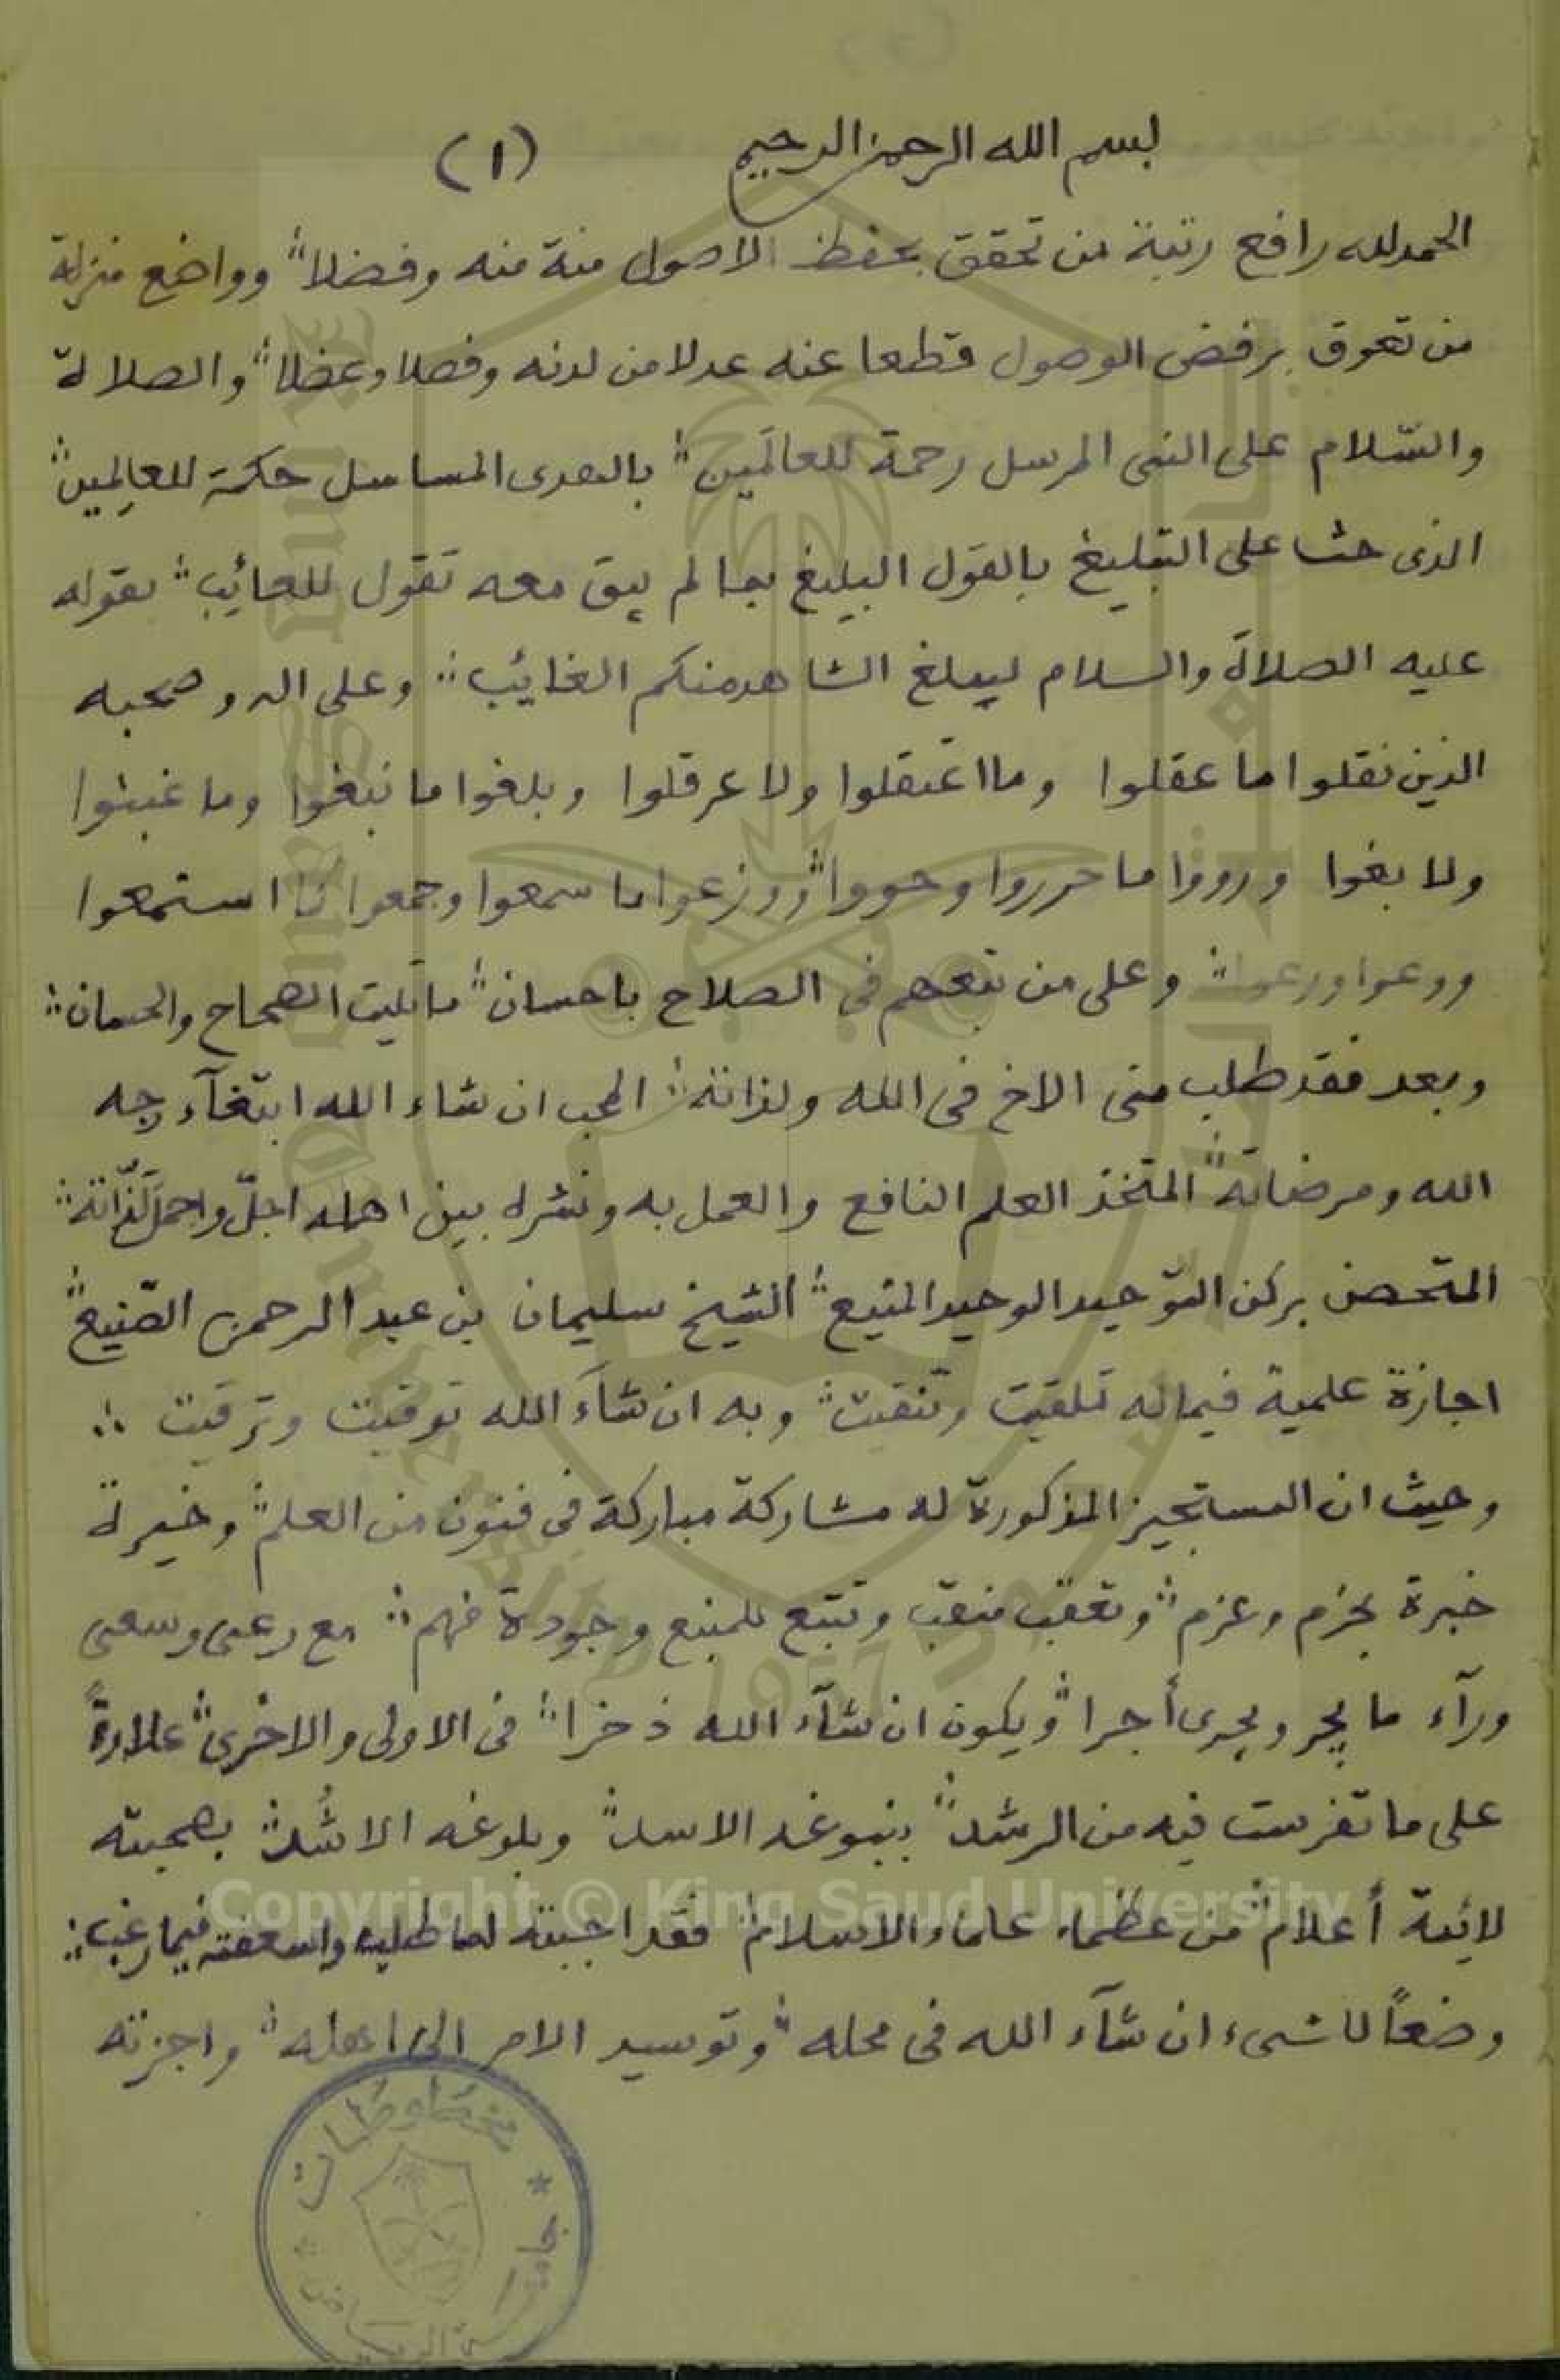 بسم الله الرحمن الرحيم (١)
الحمد لله رافع رتبة من تحقق بحفظ الاصول منة منه وفضلا" وواضع منزلة
من تعوق برفض الوصول قطعا عنه عدلا من لدنه وفصلا وعضلا" والصلاة
والسّلام على النبى المرسل رحمة للعالَمين" بالهدى المساسل حكمة للعالِمين"
الذى حثنا على التبليغ بالقول البليغ بما لم يبق معه تقول للعائيب" بقوله
عليه الصلاة والسلام ليبلغ الشاهد منكم الغائيب" وعلى اله وصحبه
الذين نقلوا ما عقلوا وما اعتقلوا ولا عرقلوا وبلغوا ما نبغوا وما غبنوا
ولا بغوا ورووا ما حرروا وحووا" ووزعوا ما سمعوا وجمعوا ما استمعوا
ووعوا ورعوا" وعلى من تبعهم فى الصلاح باحسان" ما تليت الصحاح والحسان"
وبعد فقد طلب منى الاخ فى الله ولذاته" المحب ان شاء الله ابتغآء وجه
الله ومرضاته" المتخذ العلم النافع والعمل به ونشره بين اهله اجلّ واجمل لذّاته"
المتحصن بركن التوّحيد الوحيد المنيع" الشيخ سليمان بن عبد الرحمن الصّنيع"
اجازة علمية فيما له تلقيت وتنقيت" وبه ان شآء الله توقيت وترقيت"
وحيث ان المستجيز المذكورة له مشاركة مباركة فى فنون من العلم" وخيرة
خبرة بحزم وعزم" وتعقب منقب وتتبع للمنبع وجودة فهم" مع رعى وسعى
ورآء ما يجر ويجرى أجرا" ويكون ان شآء الله ذخرا" فى الاولى والاخرى" علاوةً
على ما تفرست فيه من الرشد" بنبوغه الاسد" وبلوغه الاشُد" بصحبته
لائيمة أعلام" من عظماء علماء الاسلام" فقد اجبته لما طلب واسعفته فيما رغب"
وضعاً للشىء ان شآء الله فى محله" وتوسيد الامر الى اهله" واجزته
مخطوطات
جامعة الرياض
Copyright © King Saud University
King Saud University
1957